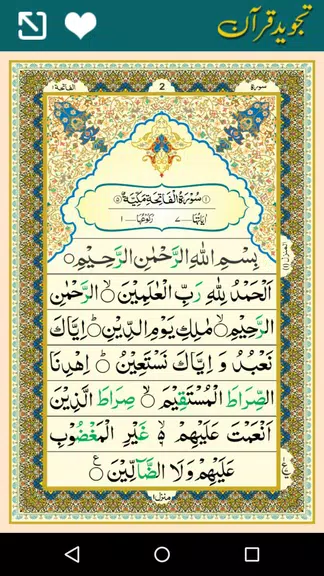 تجوید قرآن
سورة 2 الفاتحة ١
سُوْرَةُ الْفَاتِحَةِ مَكِّيَّةٌ
اٰیَاتُہَا ۷ رُکُوْعُہَا ۱
بِسْمِ اللّٰهِ الرَّحْمٰنِ الرَّحِیْمِ
اَلْحَمْدُ لِلّٰهِ رَبِّ الْعٰلَمِیْنَ ۙ الرَّحْمٰنِ
الرَّحِیْمِ ۙ مٰلِكِ یَوْمِ الدِّیْنِ ؕ اِیَّاكَ
نَعْبُدُ وَ اِیَّاكَ نَسْتَعِیْنُ ؕ اِهْدِنَا
الصِّرَاطَ الْمُسْتَقِیْمَ ۙ صِرَاطَ الَّذِیْنَ
اَنْعَمْتَ عَلَیْهِمْ ۙ غَیْرِ الْمَغْضُوْبِ
عَلَیْهِمْ وَلَا الضَّآلِّیْنَ
منزل ١